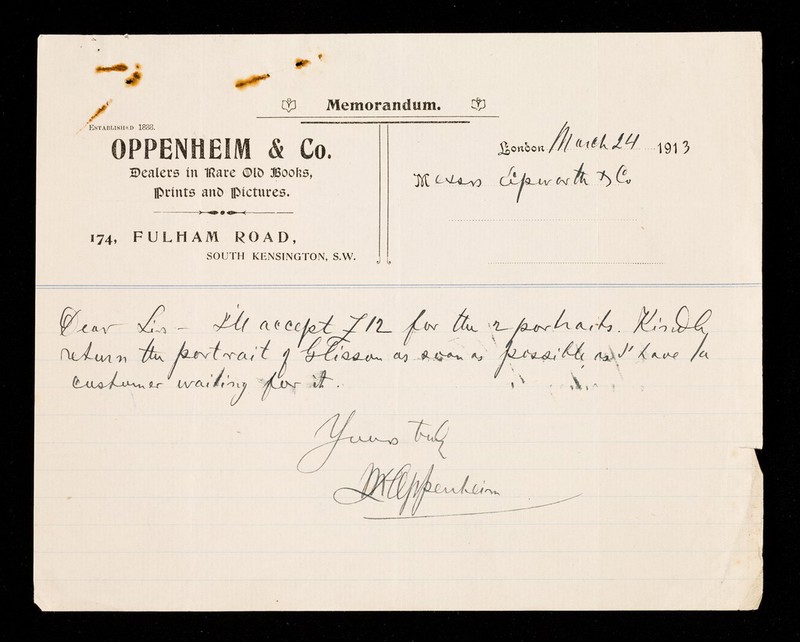 Memorandum.
ESTABLISHED 1888.
OPPENHEIM & Co.
Dealers in Rare Old Books,
Prints and Pictures.
174, FULHAM ROAD,
SOUTH KENSINGTON, S.W.
London March 24 1913
Messrs Epworth & Co
Dear Sirs – I'll accept £12 for the 2 portraits. Kindly
return the portrait of Glisson as soon as possible as I have a
customer waiting for it.
Yours truly
Oppenheim